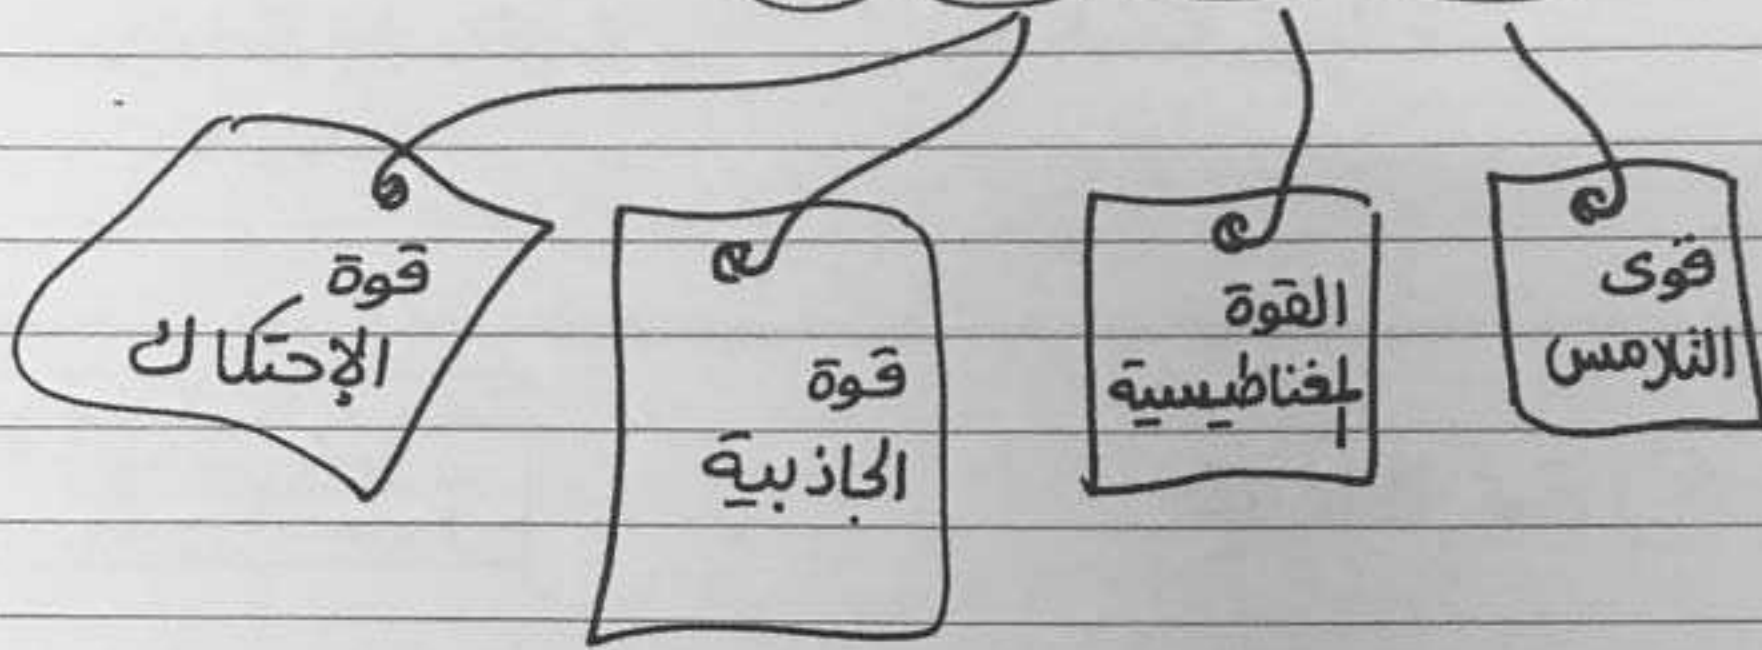 قوى
التلامس
القوة
المغناطيسية
قوة
الجاذبية
قوة
الإحتكاك